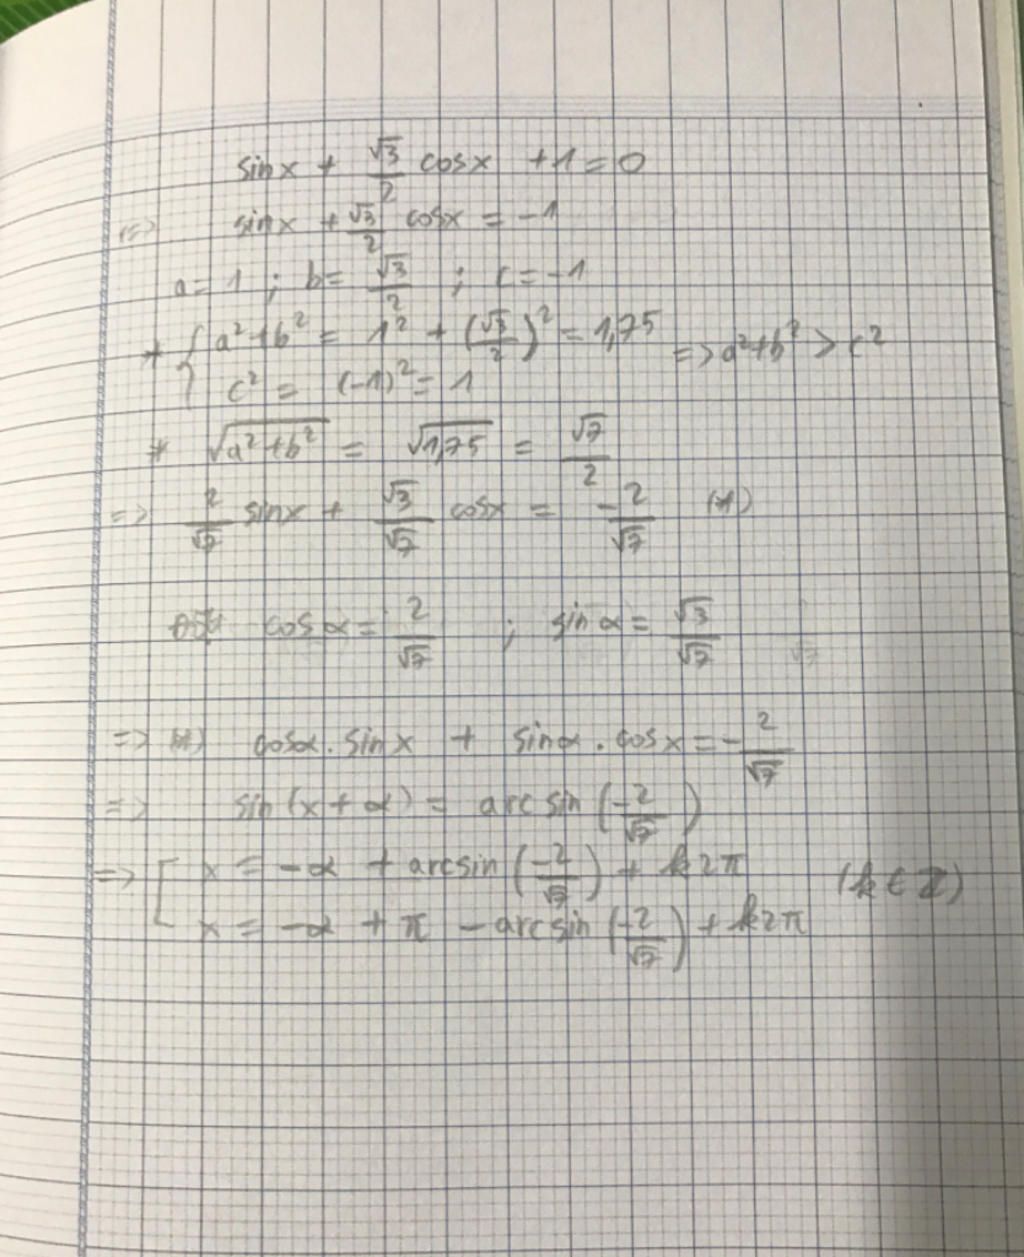 sinx + √3/2 cosx + 1 = 0
<=> sinx + √3/2 cosx = -1
a = 1 ; b = √3/2 ; c = -1
+ { a² + b² = 1² + (√3/2)² = 1,75 => a² + b² > c²
c² = (-1)² = 1
* √(a² + b²) = √1,75 = √7/2
=> 2/√7 sinx + √3/√7 cosx = -2/√7 (*)
cos α = 2/√7 ; sin α = √3/√7 √7
=> (*) cosα . sinx + sinα . cosx = -2/√7
=> sin(x + α) = arcsin(-2/√7)
=> [ x = -α + arcsin(-2/√7) + k2π (k ∈ Z)
x = -α + π - arcsin(-2/√7) + k2π